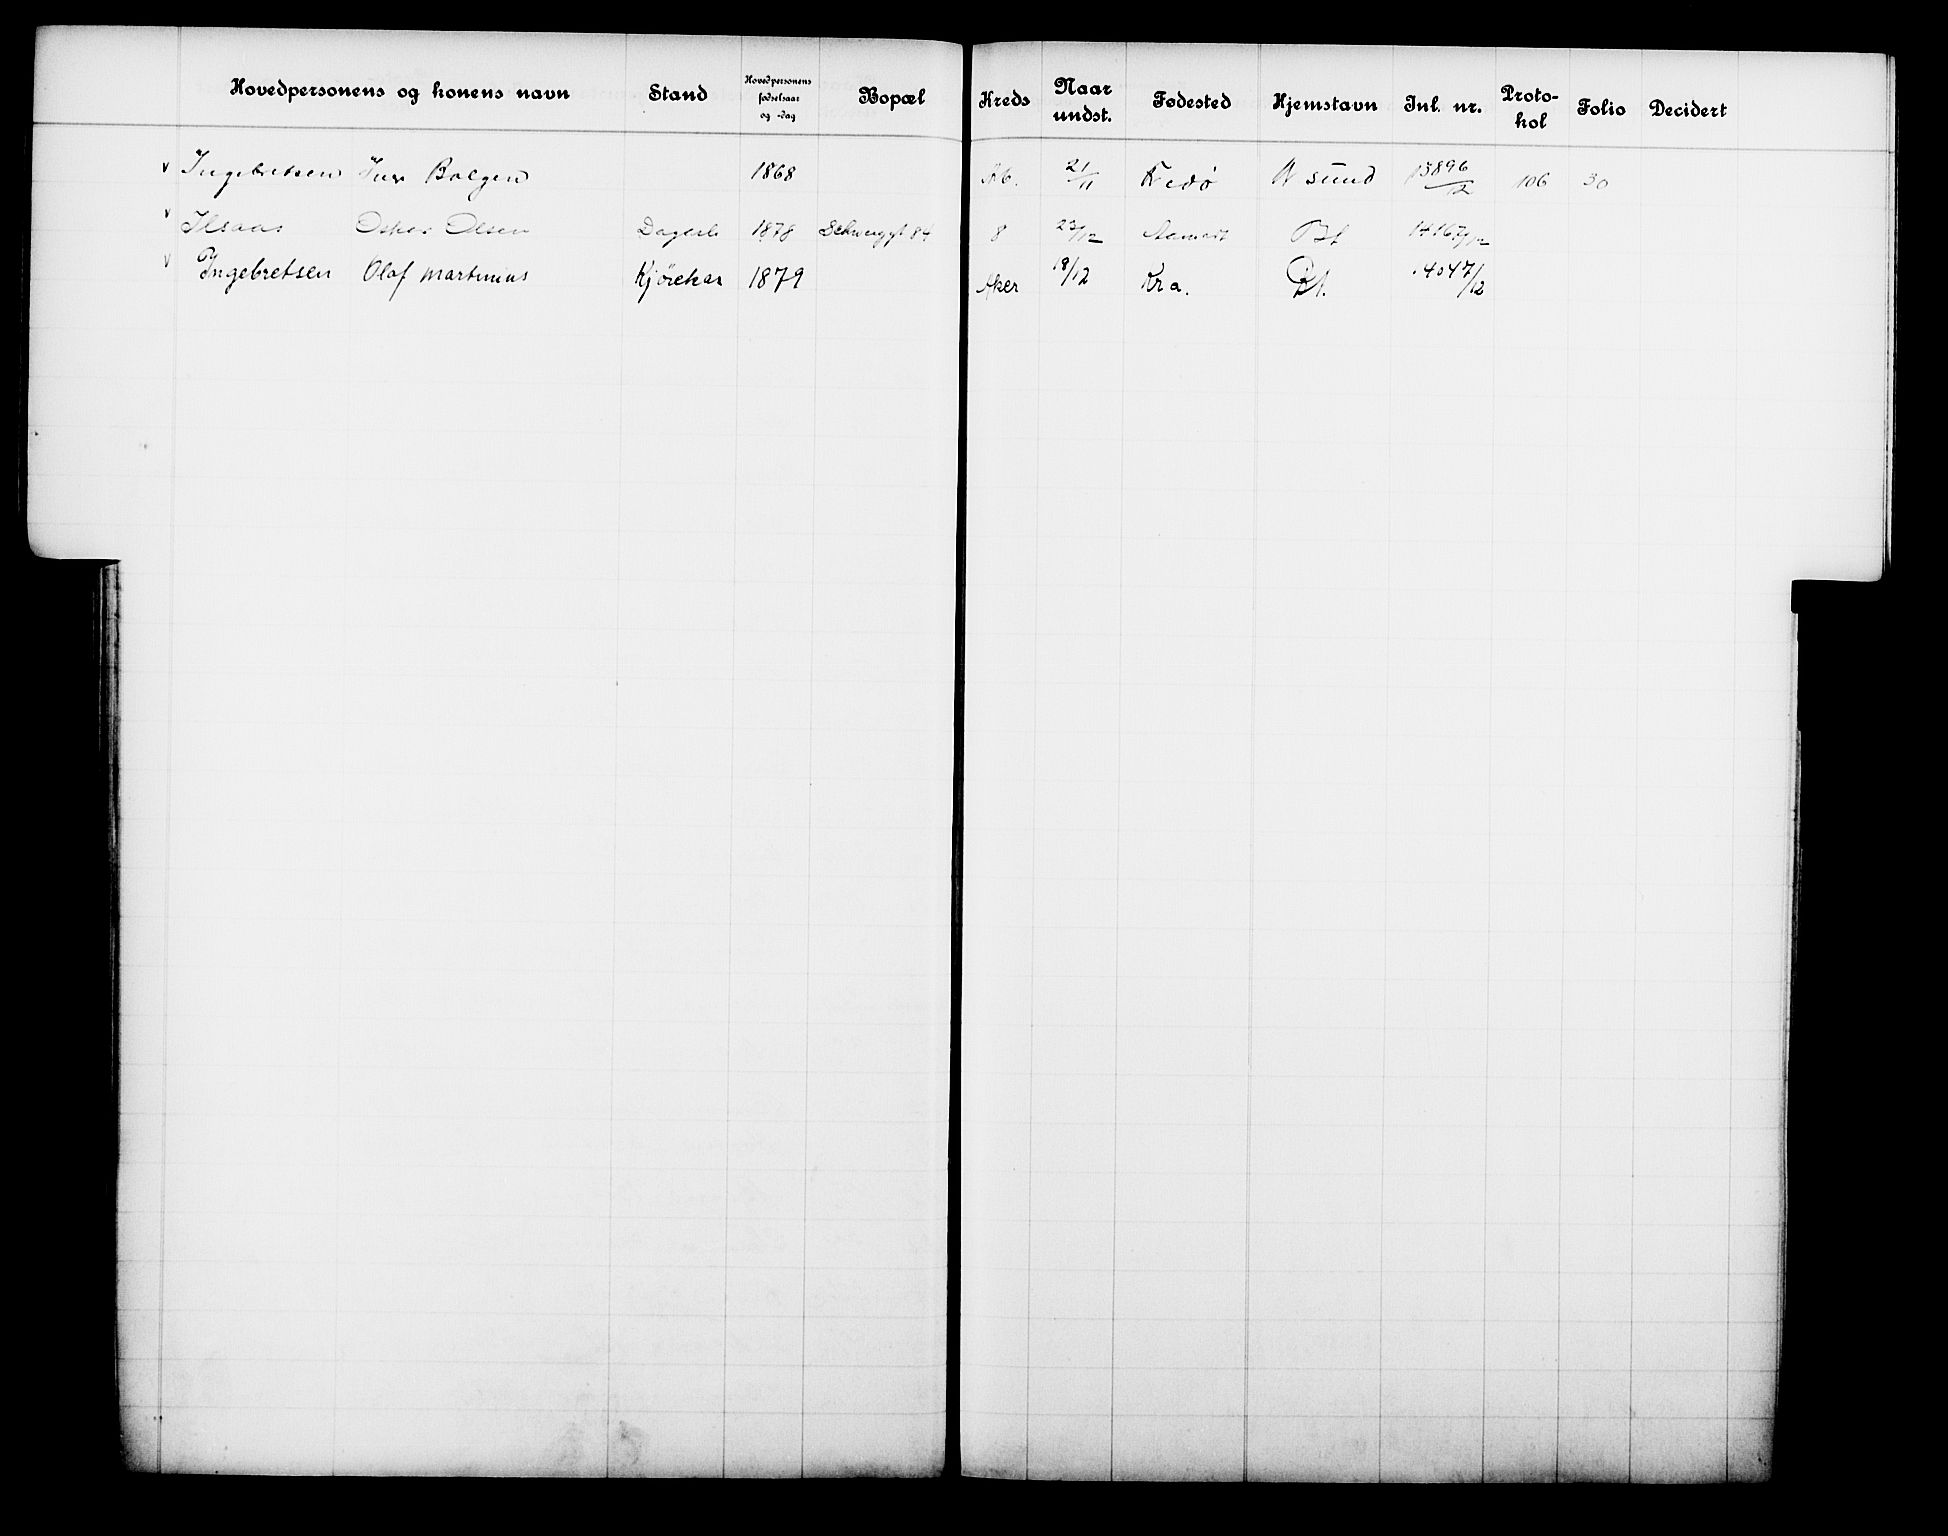 Hovedpersonens og konens navn Stand Hovedpersonens fødselsaar og -dag Bopæl Kreds Naar undst. Fødested Hjemstavn Inl. nr. Protokol Folio Decidert
v Ingebretsen Bolgen 1868 Ab. 21/11 Kvedø N sund 13896/12 106 30
v Ilsaas Oskar Olsen Dagarb 1878 Schweiggt 84 8 23/12 Aamodt Bf 14167/12
v Ingebretsen Olaf Martinius Kjørekar 1879 Aker 18/12 Kra. Bf. 14047/12